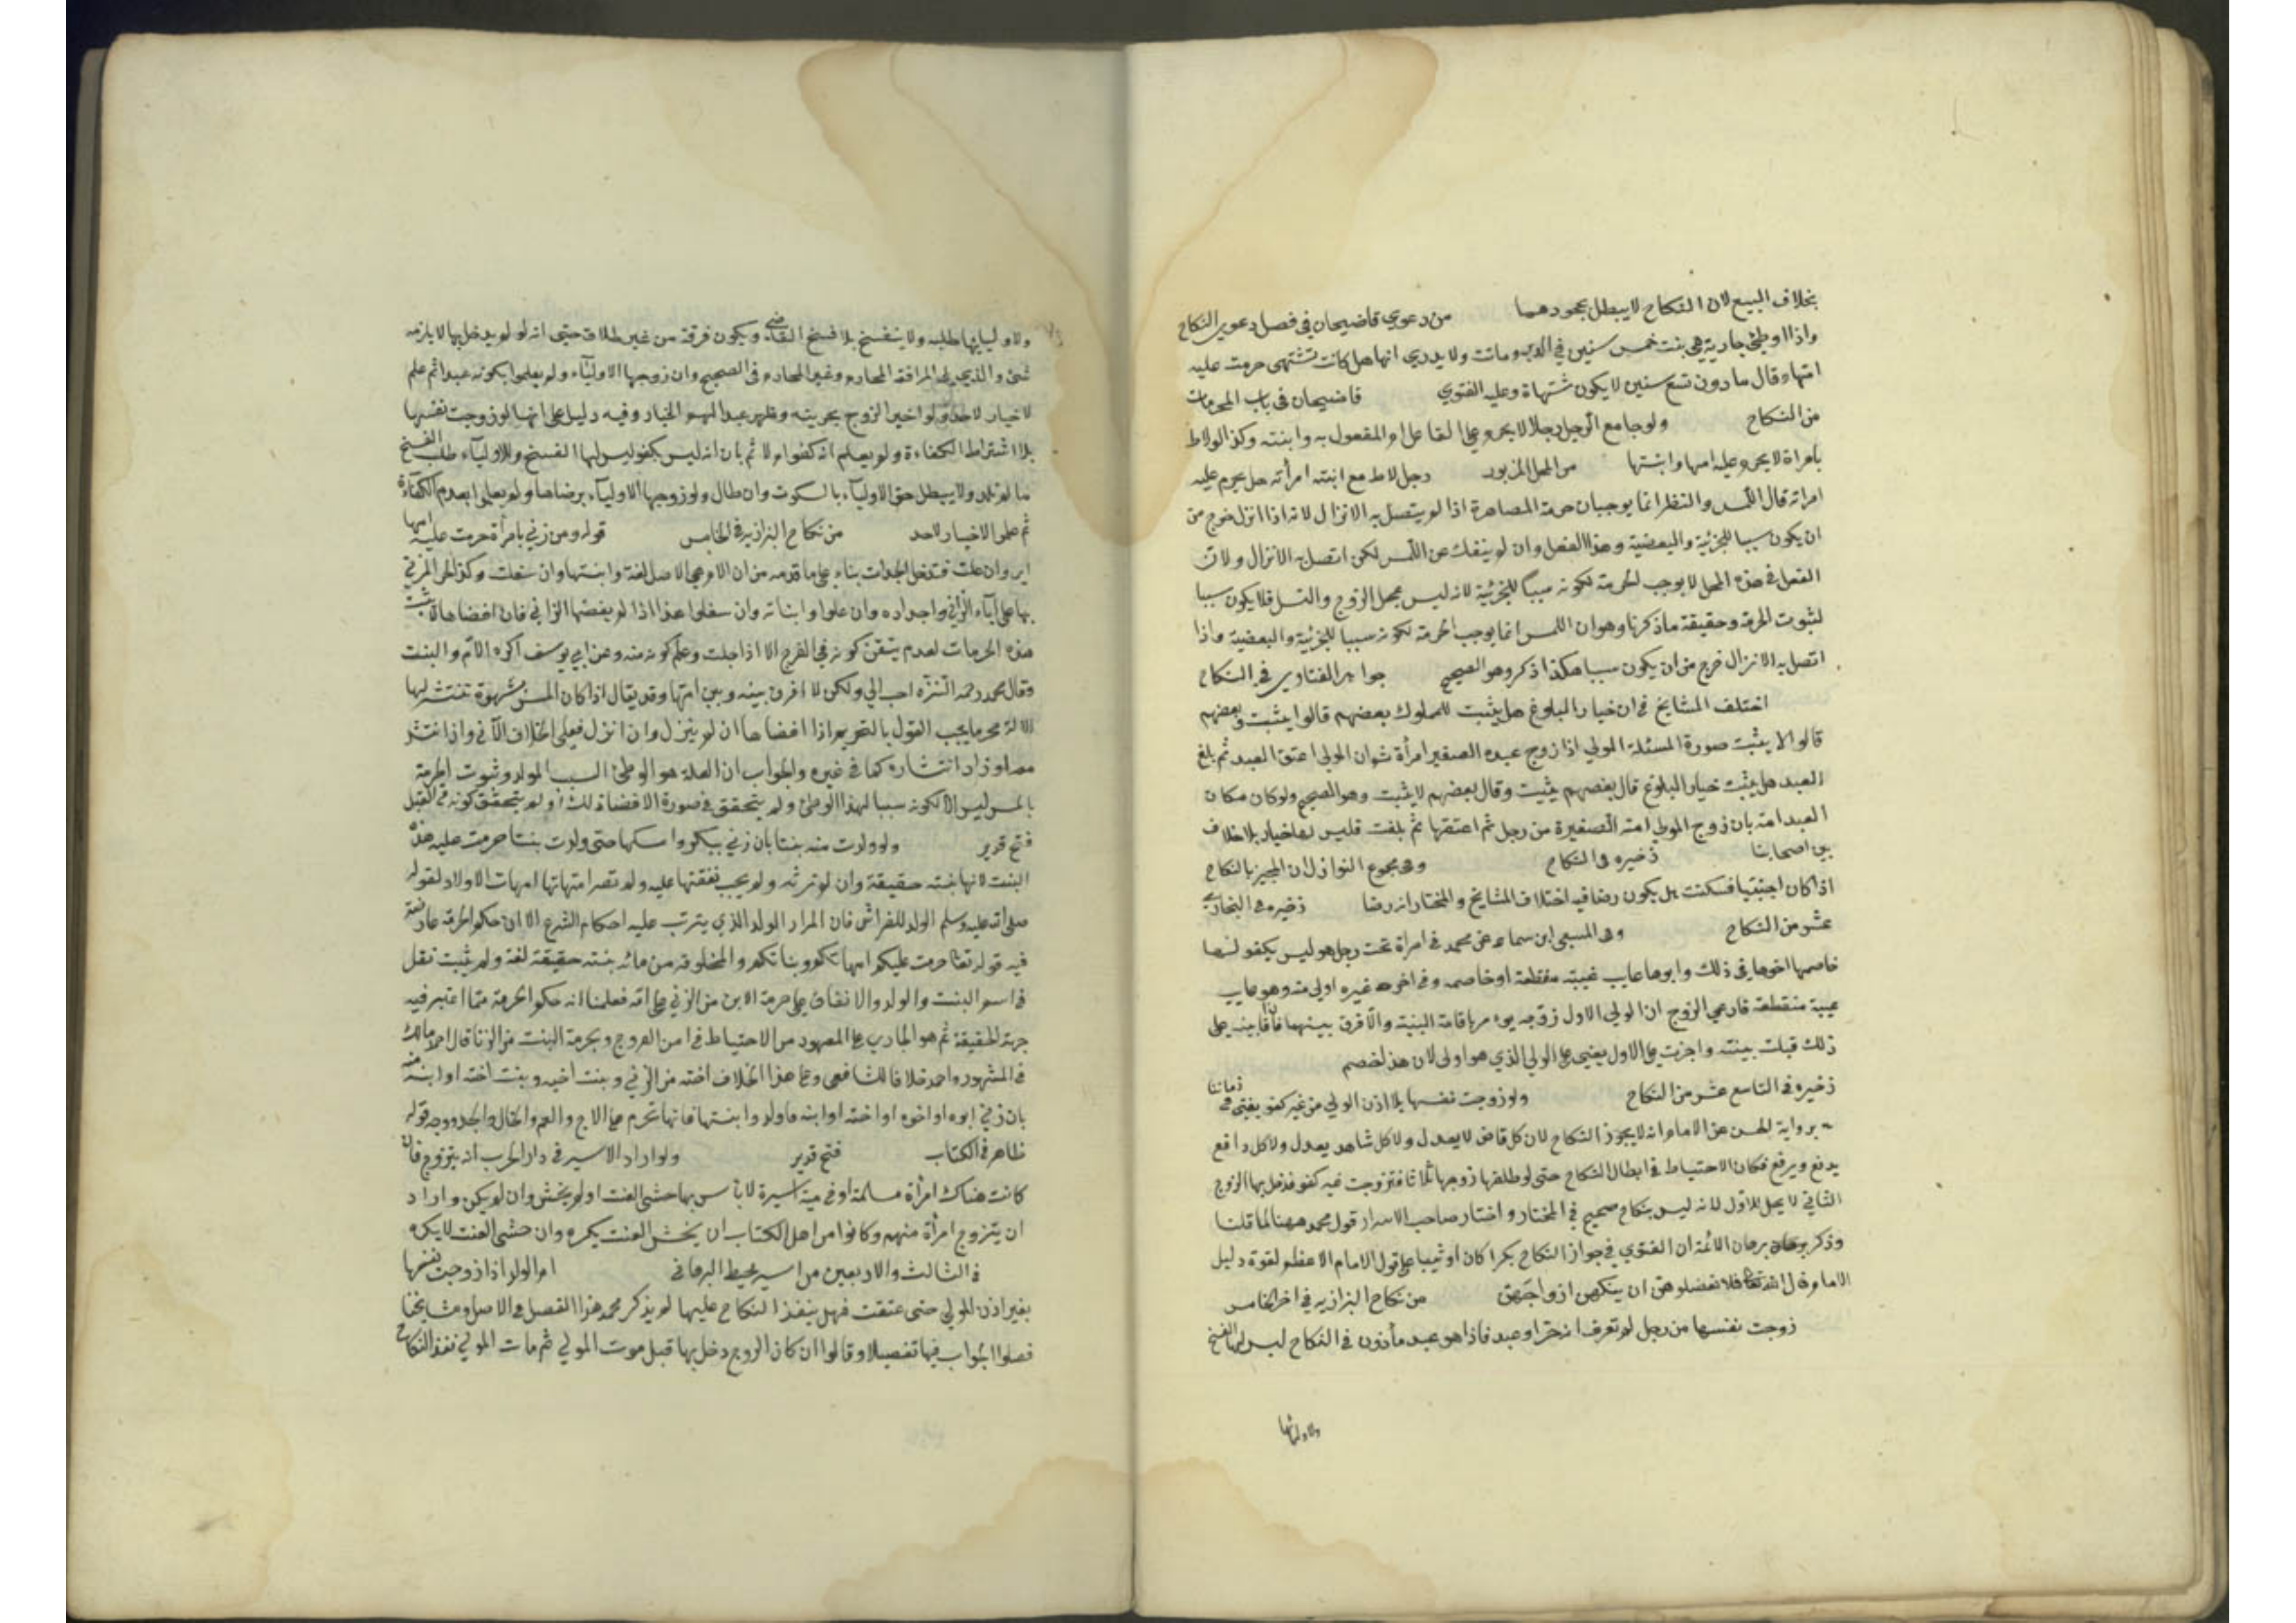 بخلاف البيع لان النكاح لا يبطل بجحودهما من دعوي قاضيحان في فصل دعوي النكاح
واذا اوطئ جارية هي بنت خمس سنين في الدبر وماتت ولا يدري انها هل كانت تشتهى حرمت عليه
امتها وقال ما دون تسع سنين لا يكون شتهاة وعليه الفتوي قاضيحان في باب المحرمات
من النكاح ولو جامع الرجل رجلا لا يحرم على الفاعل ام المفعول به وابنته وكذا لو لاط
بامراة لا يحرم عليه امها وابنتها من المحل المزبور رجل لاط مع ابنته امرأته هل يحرم عليه
امراته قال اللمس والنظر انما يوجبان حرمة المصاهرة اذا لم يتصل به الانزال لانه اذا انزل خرج من
ان يكون سببا للجزئية والبعضية وهذا الفعل وان لم ينفك عن اللمس لكن اتصل به الانزال ولان
الفعل في هذه المحل لا يوجب الحرمة لكونه سببا للجزئية لانه ليس بمحل الزوج والنسل فلا يكون سببا
لثبوت الحرمة وحقيقة ما ذكرنا وهو ان اللمس انما يوجب الحرمة لكونه سببا للجزئية والبعضية واذا
اتصل به الانزال خرج من ان يكون سببا هكذا ذكر وهو الصحيح جواهر الفتاوي في النكاح
اختلف المشايخ في ان خيار البلوغ هل يثبت للمملوك بعضهم قالوا يثبت وبعضهم
قالوا لا يثبت صورة المسئلة المولي اذا زوج عبده الصغير امرأة ثم ان المولي اعتق العبد ثم بلغ
العبد هل يثبت خيار البلوغ قال بعضهم يثبت وقال بعضهم لا يثبت وهو الصحيح ولو كان مكان
العبد امته بان زوج المولي امته الصغيرة من رجل ثم اعتقها ثم بلغت فليس لها خيار بلا خلاف
بين اصحابنا ذخيره في النكاح وفي مجموع النوازل ان المجيز بالنكاح
اذا كان اجنبيا فسكتت هل يكون رضا فيه اختلاف المشايخ والمختار انه رضا ذخيره في
عشر من النكاح وفي ابن سماعه عن محمد في امراة تحت رجل هو ليس بكفو لها
خاصمها اخوها في ذلك وابوها غايب غيبته منقطعة او خاصمه وفي اخرة غيره اولي منه وهو غايب
غيبة منقطعة فادعي الزوج ان الولي الاول زوجه يؤمر باقامة البينة والا فرق بينهما فان اقام بينه على
ذلك قبلت بينته واجزيت على الاول يعني على الولي الذي هو اولى لان هذا خصم
ذخيره في التاسع عشر من النكاح ولو زوجت نفسها بلا اذن الولي من غير كفو يفتى في زماننا
برواية الحسن عن الامام انه لا يجوز النكاح لان كل قاض لا يعدل ولا كل شاهد يعدل ولا كل دافع
يدفع ويرفع فكان الاحتياط في ابطال النكاح حتى لو طلقها زوجها ثلاثا فتزوجت غير كفو فدخل بها الزوج
الثاني لا يحل للاول لانه ليس بنكاح صحيح في المختار واختار صاحب الاسرار قول محمد ههنا لما قلنا
وذكر برهان الائمة ان الفتوي في جواز النكاح بكرا كان او ثيبا على قول الامام الاعظم لقوة دليل
الامام قال الله تعالى فلا تعضلوهن ان ينكحن ازواجهن من نكاح البزازيه في اخر الخامس
زوجت نفسها من رجل لم تعرف انه حر او عبد فاذا هو عبد مأذون في النكاح ليس لها الفسخ
ولاوليائها
ولاوليائها طلبه ولا ينفسخ بلا فسخ القاضي ويكون فرقة من غير طلاق حتى انه لو لم يدخل بها لا يلزمه
شئ والذي يلي المرافقه المحارم وغير المحارم في الصحيح وان زوجها الاولياء ولم يعلموا بكونه عبدا ثم علم
لا خيار لاحد ولو اخبر الزوج بحريته وظهر عبدا لهم الخيار وفيه دليل على انها لو زوجت نفسها
بلا اشتراط الكفاءة ولم يعلم انه كفو ام لا ثم بان انه ليس بكفو ليس لها الفسخ وللاولياء طلب الفسخ
ما لم تلد ولا يبطل حق الاولياء بالسكوت وان طال ولو زوجها الاولياء برضاها ولم يعلموا بعدم الكفاءة
ثم علموا لا خيار لاحد من نكاح البزازيه في الخامس قوله ومن زني بامرأة حرمت عليه امها
اي وان علت فتدخل الجدات بناء على ما قدمه من ان الام هي الاصل لغة وابنتها وان سفلت وكذا تحرم المزني
بها على آباء الزاني واجداده وان علوا وابنائه وان سفلوا هذا اذا لم يفضها الزاني فان افضاها لا تثبت
هذه الحرمات لعدم تيقن كونه في الفرج الا اذا حبلت وعلم كونه منه وعن ابي يوسف اكره الام والبنت
وقال محمد رحمه التنزه احب الي ولكن لا افرق بينه وبين امتها وقد يقال اذا كان المس بشهوة تنتشر لها
الالة محرما يجب القول بالتحريم اذا افضاها ان لم ينزل وان انزل فعلى الخلاف الآتي واذا انتشر
معه او زاد انتشاره كما في غيره والجواب ان العلة هو الوطئ السبب للولد وثبوت الحرمة
بالمس ليس الا لكونه سببا لهذا الوطئ ولم يتحقق في صورة الافضاة ذلك اذ لم يتحقق كونه في القبل
فتح قدير ولو ولدت منه بنتا بان زني ببكر وامسكها حتى ولدت بنتا حرمت عليه هذه
البنت لانها بنته حقيقة وان لم ترثه ولم يجب نفقتها عليه ولم تصر امتهاتها امهات الاولاد لقوله
صلى الله عليه وسلم الولد للفراش فان المراد الولد الذي يترتب عليه احكام الشرع الا ان حكم الحرمة عارضته
فيه قوله تعالى حرمت عليكم امهاتكم وبناتكم والمخلوقه من مائه بنته حقيقة لغة ولم يثبت نقل
في اسم البنت والولد والاتفاق على حرمة الابن من الزني على امه فعلمنا انه حكم الحرمة مما اعتبر فيه
جهة الحقيقة ثم هو الجاري على المعهود من الاحتياط في امر الفروج وبحرمة البنت من الزنا قال مالك
في المشهور واحمد خلافا للشافعي وعلى هذا الخلاف اخته من الزني وبنت اخيه وبنت اخته او ابنه منه
بان زني ابوه او اخوه او اخته او ابنه فاولدوا بنتها فانها تحرم على الاخ والعم والخال والجد ووجه قوله
ظاهر في الكتاب فتح قدير ولو اراد الاسير في دار الحرب ان يتزوج فان
كانت هناك امرأة مسلمة او ذمية اسيرة لا بأس بها خشى العنت او لم يخش وان لم يكن واراد
ان يتزوج امرأة منهم وكانوا من اهل الكتاب ان يخش العنت يكره وان خشى العنت لا يكره
في الثالث والاربعين من اسير محيط البرهاني ام الولد اذا زوجت نفسها
بغير اذن المولي حتى عتقت فهل ينفذ النكاح عليها لم يذكر محمد هذا الفصل في الاصل ومشايخنا
فصلوا الجواب فيها تفصيلا وقالوا ان كان الزوج دخل بها قبل موت المولي ثم مات المولي نفذ النكاح